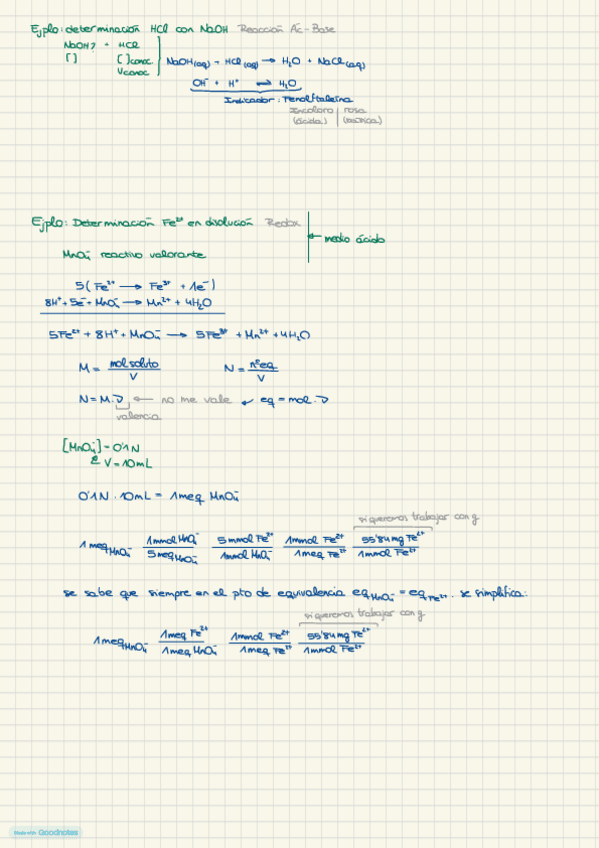 Ejplo: determinación HCl con NaOH Reacción Ác-Base
NaOH? + HCl
[ ] [ ]conoc.
Vconoc
NaOH(aq) + HCl(aq) → H₂O + NaCl(aq)
OH⁻ + H⁺ ⇌ H₂O
Indicador: Fenolftaleína
Incoloro | rosa
(ácida) | (básica)
Ejplo: Determinación Fe²⁺ en disolución Redox
← medio ácido
MnO₄⁻ reactivo valorante
5(Fe²⁺ → Fe³⁺ + 1e⁻)
8H⁺ + 5e⁻ + MnO₄⁻ → Mn²⁺ + 4H₂O
5Fe²⁺ + 8H⁺ + MnO₄⁻ → 5Fe³⁺ + Mn²⁺ + 4H₂O
M = mol soluto / V N = nºeq / V
N = M·ν ← no me vale ↙ eq = mol·ν
valencia
[MnO₄⁻] = 0'1 N
V = 10mL
0'1N · 10mL = 1meq MnO₄⁻
si queremos trabajar con g
1 meq MnO₄⁻ 1mmol MnO₄⁻ / 5meq MnO₄⁻ 5 mmol Fe²⁺ / 1mmol MnO₄⁻ 1mmol Fe²⁺ / 1meq Fe²⁺ 55'84mg Fe²⁺ / 1mmol Fe²⁺
se sabe que siempre en el pto de equivalencia eq MnO₄⁻ = eq Fe²⁺. se simplifica:
si queremos trabajar con g
1meq MnO₄⁻ 1meq Fe²⁺ / 1meq MnO₄⁻ 1mmol Fe²⁺ / 1meq Fe²⁺ 55'84mg Fe²⁺ / 1mmol Fe²⁺
Made with Goodnotes